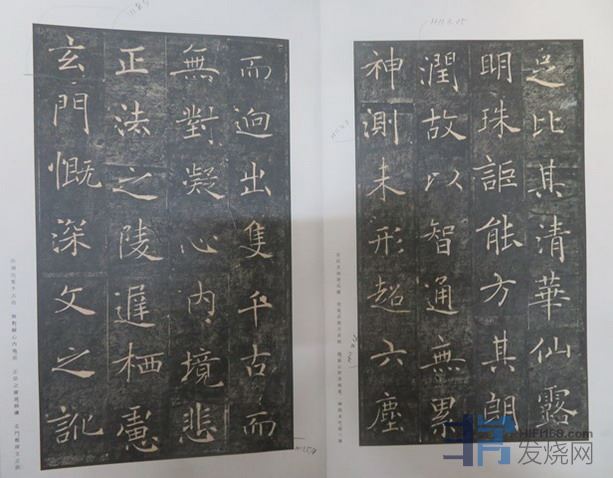 足比其清華仙露
明珠詎能方其朗
潤故以智通無累
神測未形超六塵
而迥出隻千古而
無對凝心內境悲
正法之陵遲栖慮
玄門慨深文之訛
发烧网